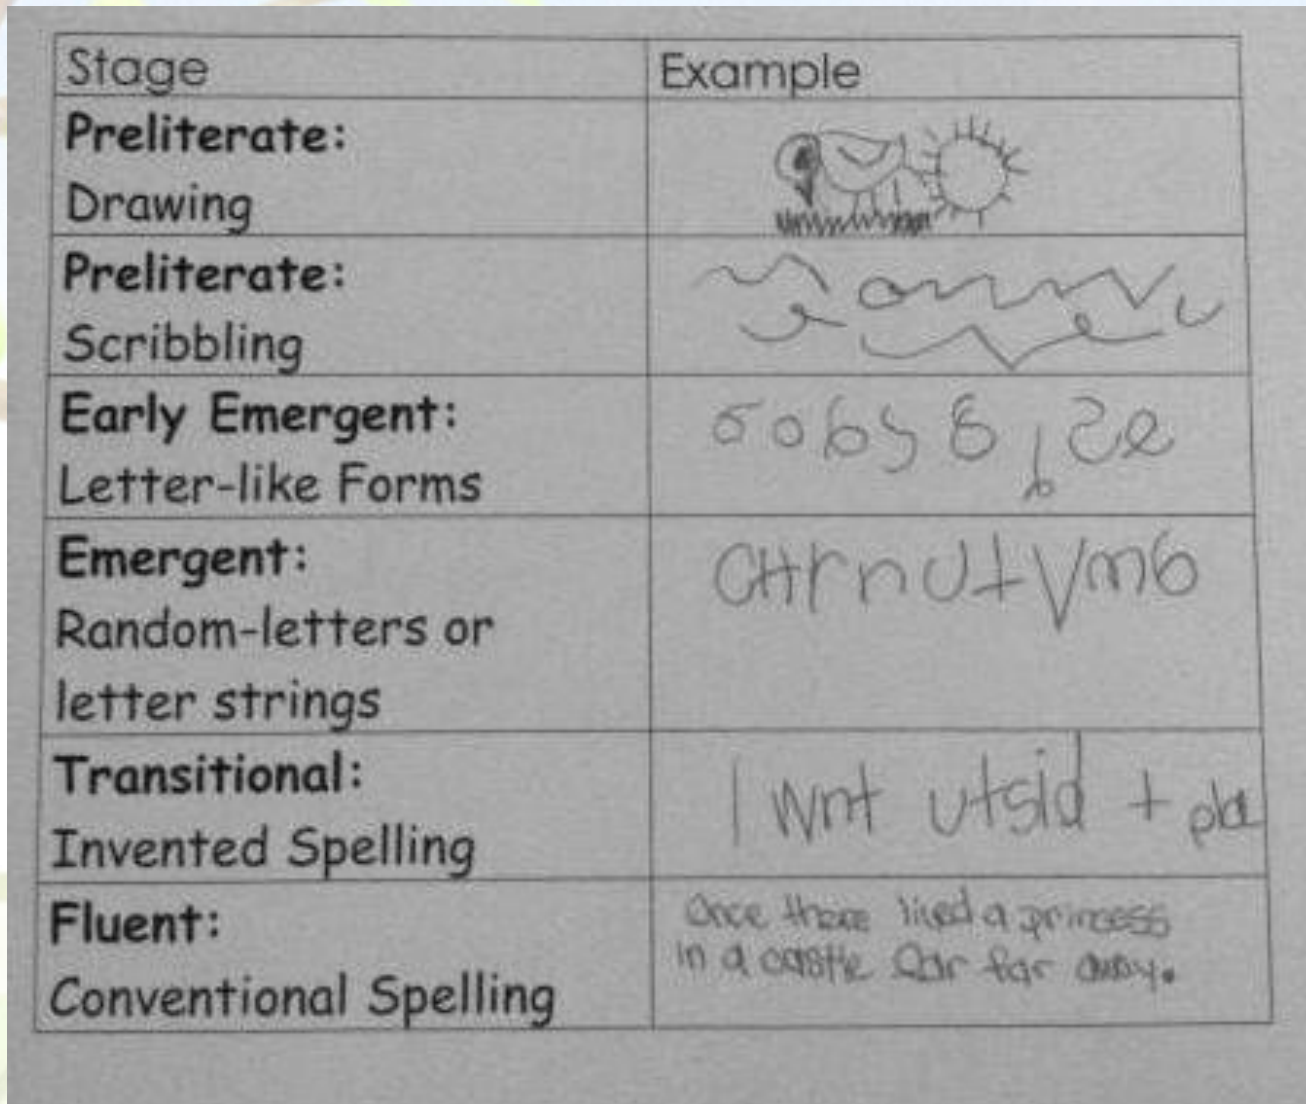 Stage Example
Preliterate:
Drawing
Preliterate:
Scribbling
Early Emergent:
Letter-like Forms
Emergent:
Random-letters or
letter strings
CttrnUtVm6
Transitional:
Invented Spelling
I wnt utsid t pla
Fluent:
Conventional Spelling
Once there lived a princess
in a castle far far away.